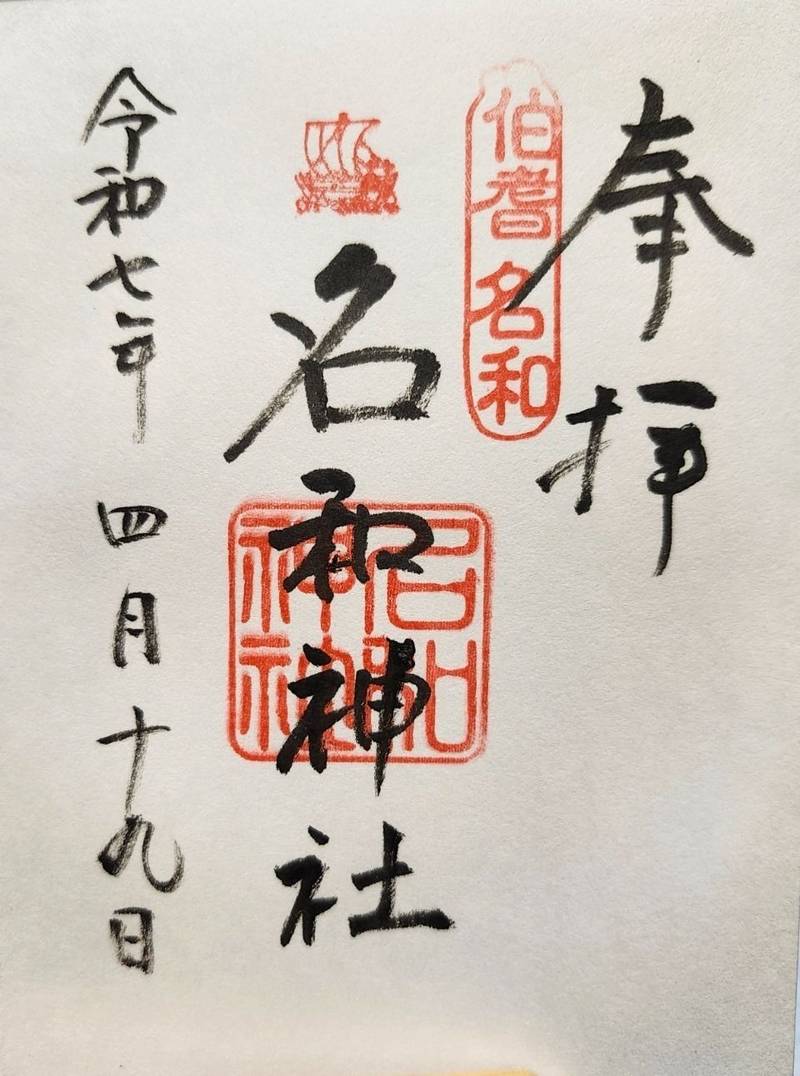 奉拝
伯耆名和
名和神社
名和神社
令和七年 四月十九日